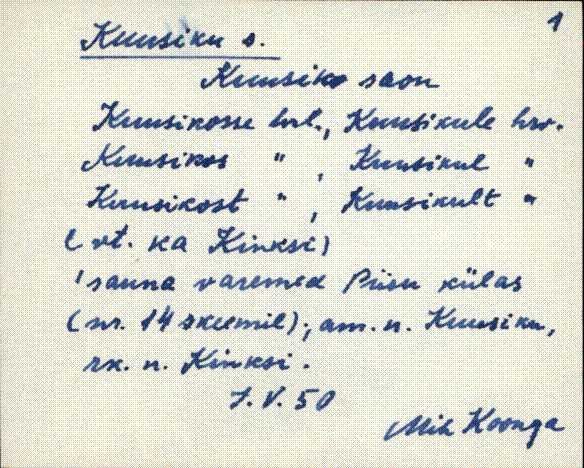 1
Kuusiku s.
Kuusiko saon
Kuusikosse hrl., Kuusikule hrv.
Kuusikos " , Kuusikul "
Kuusikost " , Kuusikult "
(vt. ka Kinksi)
'sauna varemed Piisu külas
(nr. 14 skeemil); am. n. Kuusiku,
rk. n. Kinksi.
7. V. 50
Mih Koonga